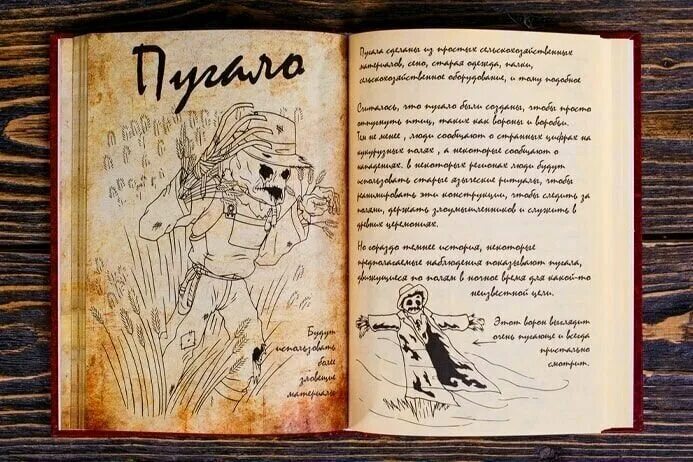 Пугало
Будут
использовать
более
зловещие
материалы
Пугала сделаны из простых сельскохозяйственных
материалов, сено, старая одежда, палки,
сельскохозяйственное оборудование, и тому подобное
Считалось, что пугало были созданы, чтобы просто
отпугнуть птиц, таких как вороны и воробьи.
Тем не менее, люди сообщают о странных цифрах на
кукурузных полях, а некоторые сообщают о
нападениях. в некоторых регионах люди будут
использовать старые языческие ритуалы, чтобы
реанимировать эти конструкции, чтобы следить за
полями, держать злоумышленников и служить в
древние церемониях.
Но гораздо темнее история, некоторые
предполагаемые наблюдения показывают пугала,
движущиеся по полям в ночное время для какой-то
неизвестной цели.
Этот ворон выглядит
очень пугающе и всегда
пристально
смотрит.